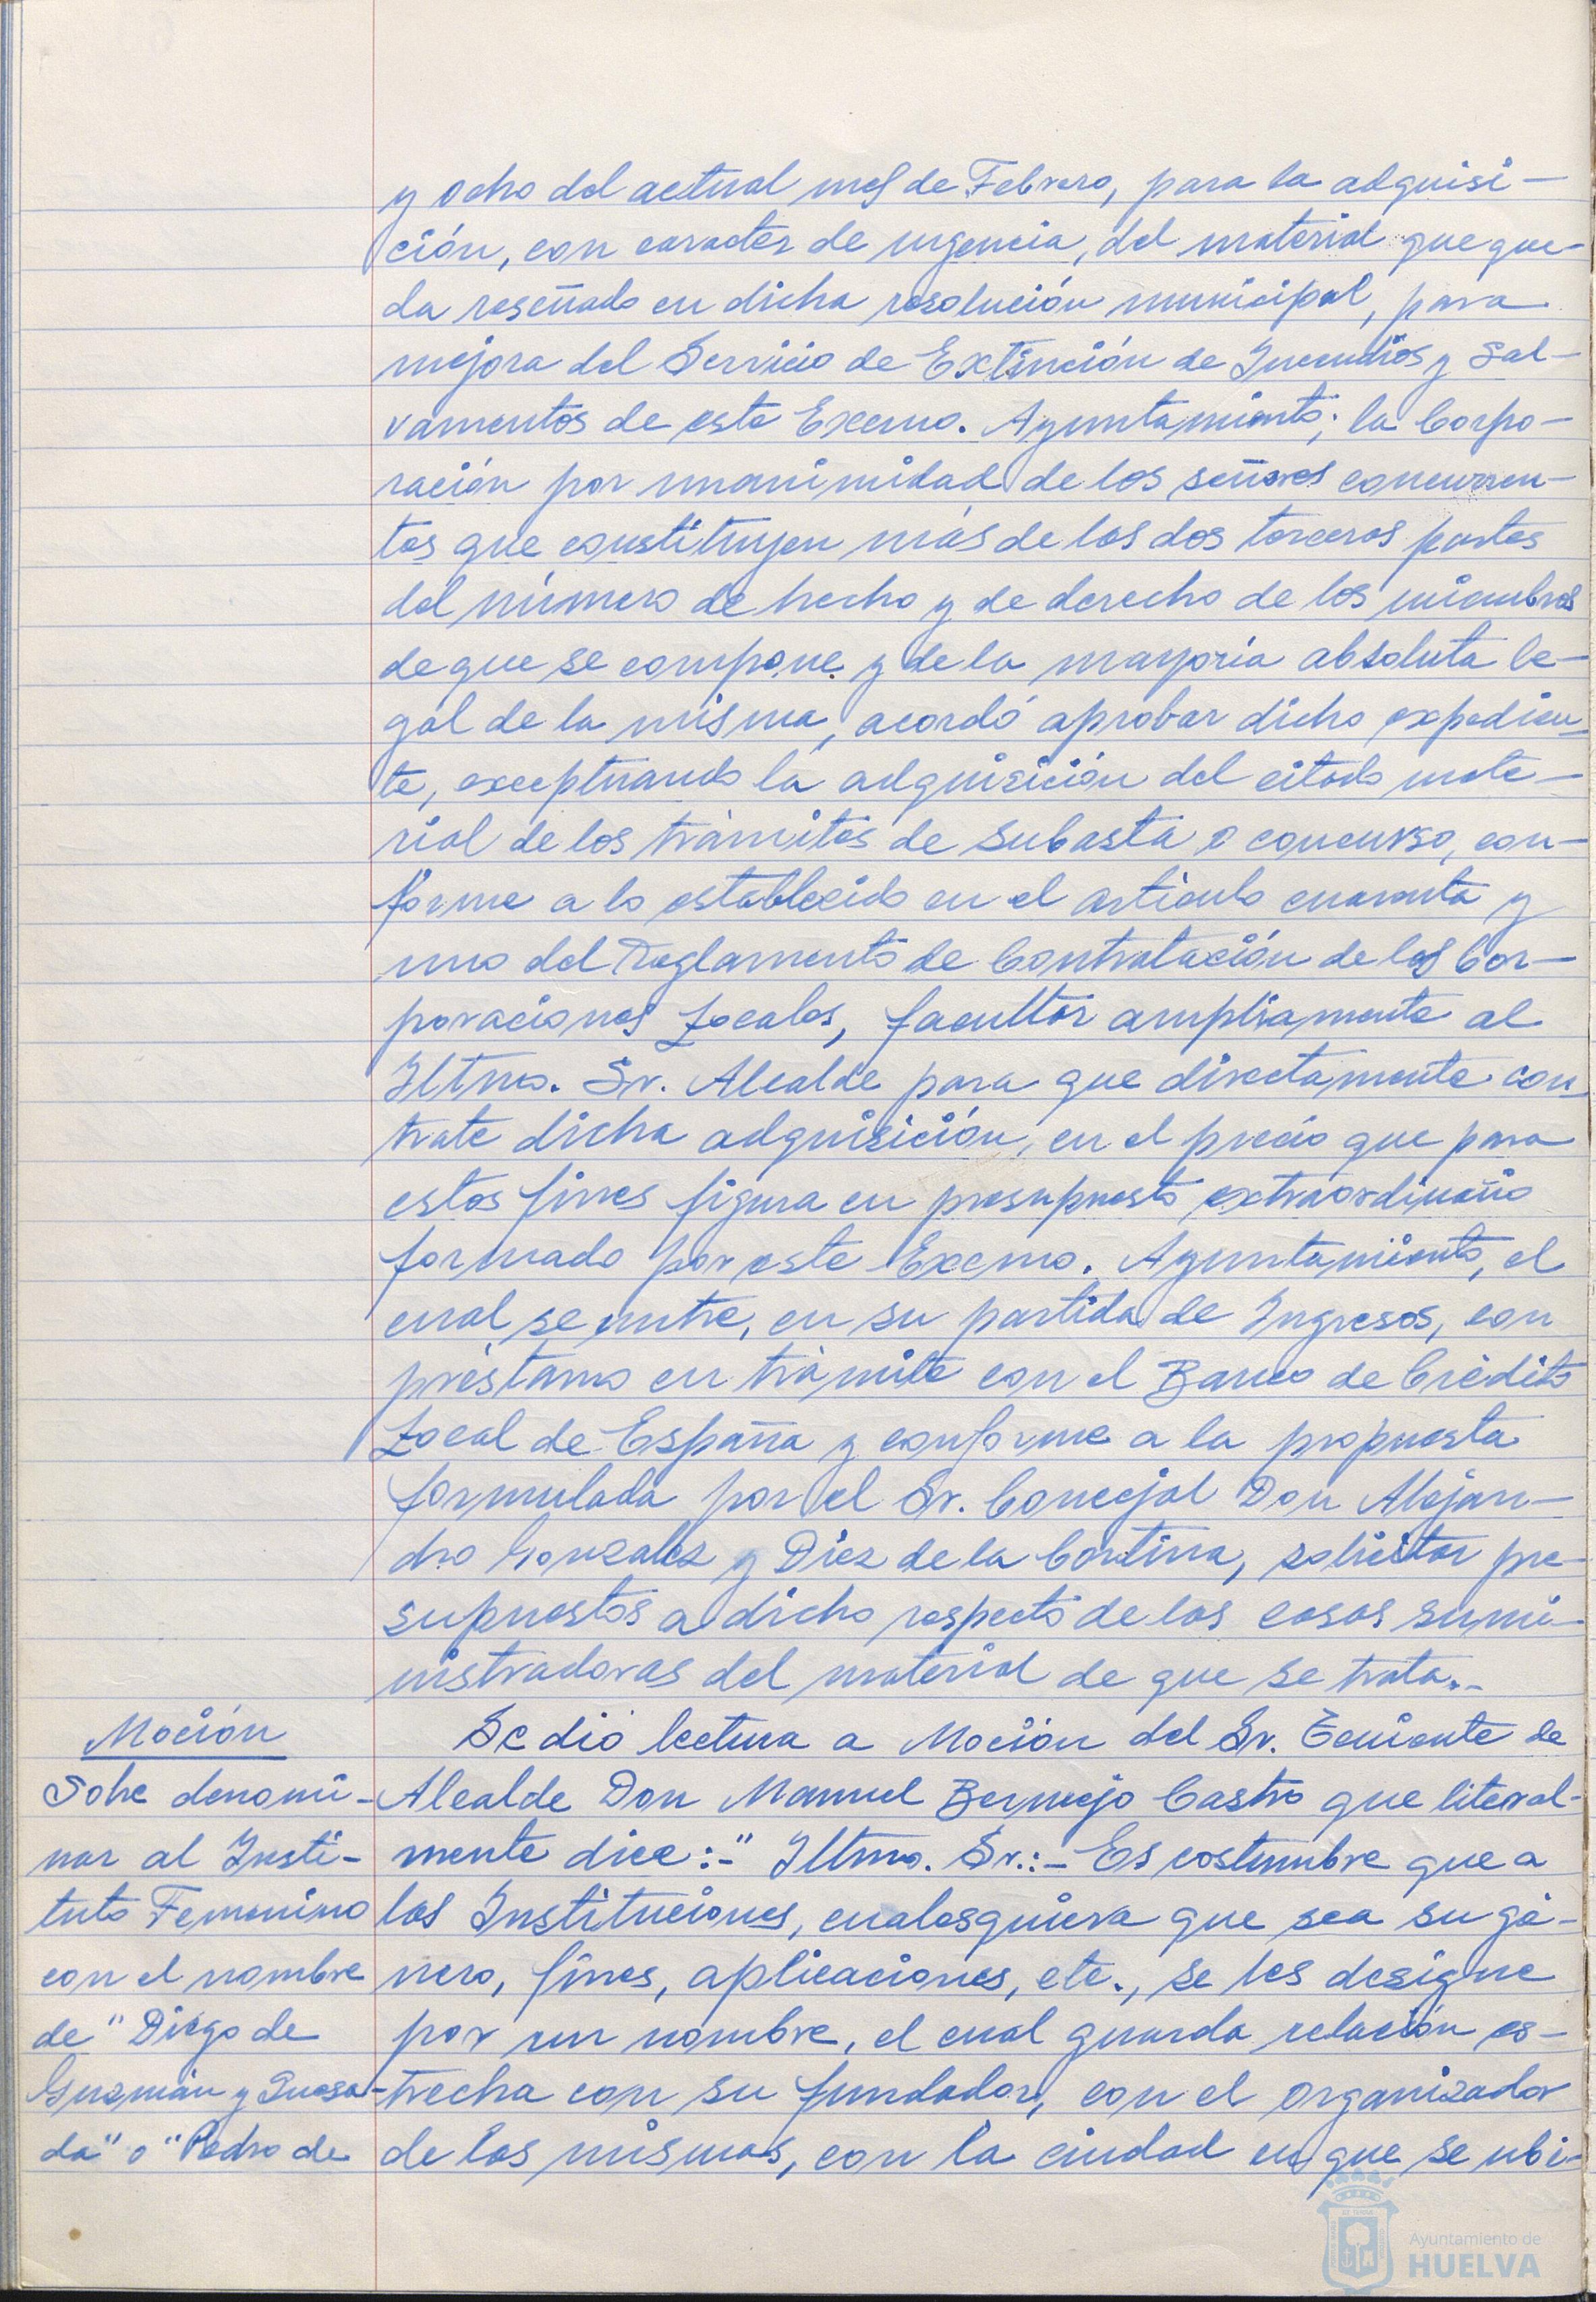 y ocho del actual mes de Febrero, para la adquisi-
ción, con caracter de urgencia, del material que que-
da reseñado en dicha resolución municipal, para
mejora del Servicio de Extinción de Incendios y Sal-
vamentos de este Excmo. Ayuntamiento; la Corpo-
ración por unanimidad de los señores concurren-
tes que constituyen más de las dos terceras partes
del número de hecho y de derecho de los miembros
de que se compone y de la mayoría absoluta le-
gal de la misma, acordó aprobar dicho expedien-
te, exceptuando la adquisición del citado mate-
rial de los trámites de subasta o concurso, con-
forme a lo establecido en el artículo cuarenta y
uno del Reglamento de Contratación de las Cor-
poraciones Locales, facultar ampliamente al
Iltmo. Sr. Alcalde para que directamente con
trate dicha adquisición, en el precio que para
estos fines figura en presupuesto extraordinario
formado por este Excmo. Ayuntamiento, el
cual se nutre, en su partida de Ingresos, con
préstamo en trámite con el Banco de Crédito
Local de España y conforme a la propuesta
formulada por el Sr. Concejal Don Alejan-
dro Gonzalez y Diez de la Cortina, solicitar pre-
supuestos a dicho respecto de las casas sumi-
nistradoras del material de que se trata.-
Moción
Sobre denomi-
nar al Insti-
tuto Femenino
con el nombre
de "Diego de
Guzmán y Quesa-
da" o "Pedro de
Se dió lectura a Moción del Sr. Teniente de
Alcalde Don Manuel Bermejo Castro que literal-
mente dice:-" Iltmo. Sr.:- Es costumbre que a
las Instituciones, cualesquiera que sea su gé-
nero, fines, aplicaciones, etc., se les designe
por un nombre, el cual guarda relación es-
trecha con su fundador, con el organizador
de las mismas, con la ciudad en que se ubi-
Ayuntamiento de
HUELVA